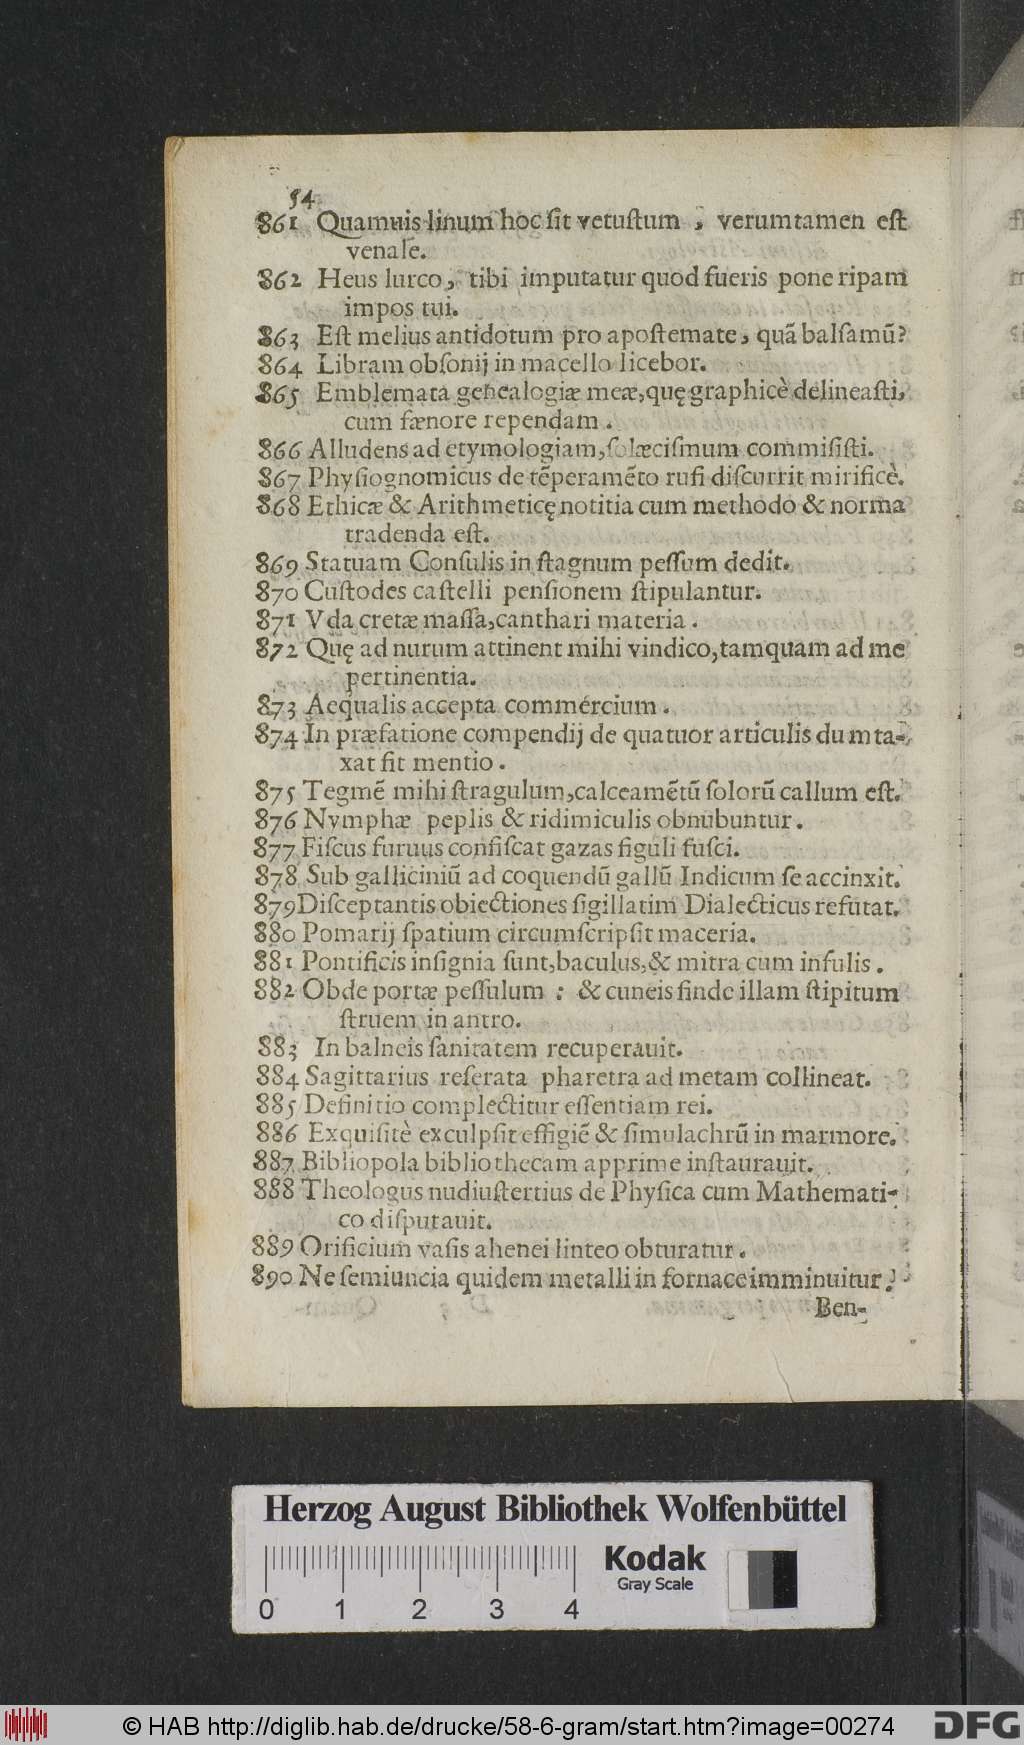 54
861 Quamuis linum hoc ſit vetuſtum , verumtamen eſt
venale.
862 Heus lurco, tibi imputatur quod fueris pone ripam
impos tui.
863 Eſt melius antidotum pro apoſtemate, quã balſamũ?
864 Libram obſonij in macello licebor.
865 Emblemata genealogiæ meæ,quę graphicè delineaſti,
cum fænore rependam .
866 Alludens ad etymologiam,ſolæciſmum commiſiſti.
867 Phyſiognomicus de tẽperamẽto rufi diſcurrit mirificè.
868 Ethicæ & Arithmeticę notitia cum methodo & norma
tradenda eſt.
869 Statuam Conſulis in ſtagnum peſſum dedit.
870 Cuſtodes caſtelli penſionem ſtipulantur.
871 Vda cretæ maſſa,canthari materia .
872 Quę ad nurum attinent mihi vindico,tamquam ad me
pertinentia.
873 Aequalis accepta commercium .
874 In præfatione compendij de quatuor articulis dumta-
xat fit mentio .
875 Tegmẽ mihi ſtragulum,calceamẽtũ ſolorũ callum eſt.
876 Nymphæ peplis & ridimiculis obnubuntur .
877 Fiſcus furuus confiſcat gazas figuli fuſci.
878 Sub galliciniũ ad coquendũ gallũ Indicum ſe accinxit.
879 Diſceptantis obiectiones ſigillatim Dialecticus refutat.
880 Pomarij ſpatium circumſcripſit maceria.
881 Pontificis inſignia ſunt,baculus,& mitra cum infulis .
882 Obde portæ peſſulum : & cuneis finde illam ſtipitum
ſtruem in antro.
883 In balneis ſanitatem recuperauit.
884 Sagittarius reſerata pharetra ad metam collineat.
885 Definitio complectitur eſſentiam rei.
886 Exquiſitè exculpſit effigiẽ & ſimulachrũ in marmore.
887 Bibliopola bibliothecam apprime inſtaurauit.
888 Theologus nudiuſtertius de Phyſica cum Mathemati-
co diſputauit.
889 Orificium vaſis ahenei linteo obturatur .
890 Ne ſemiuncia quidem metalli in fornace imminuitur.
Ben-
Herzog August Bibliothek Wolfenbüttel
Kodak
Gray Scale
0 1 2 3 4
© HAB http://diglib.hab.de/drucke/58-6-gram/start.htm?image=00274
DFG